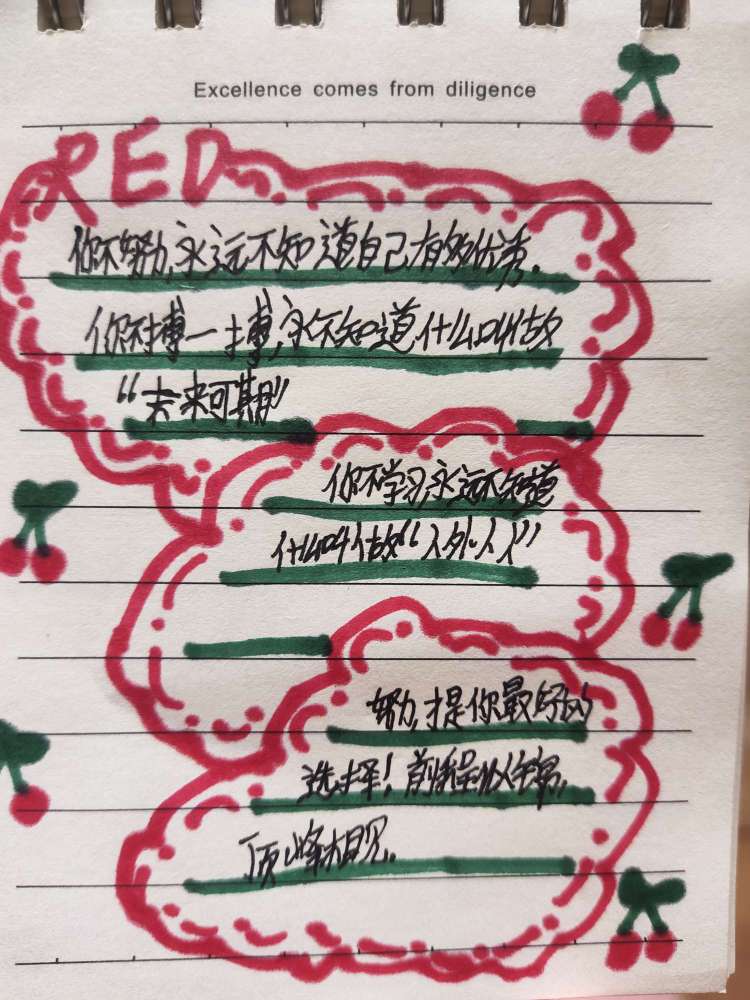 Excellence comes from diligence
RED
你不努力,永远不知道自己有多优秀.
你不搏一搏,永不知道,什么叫做
“未来可期”
你不学习,永远不知道
什么叫做“人外人”
努力,才是你最好的
选择!前程似锦,
顶峰相见.